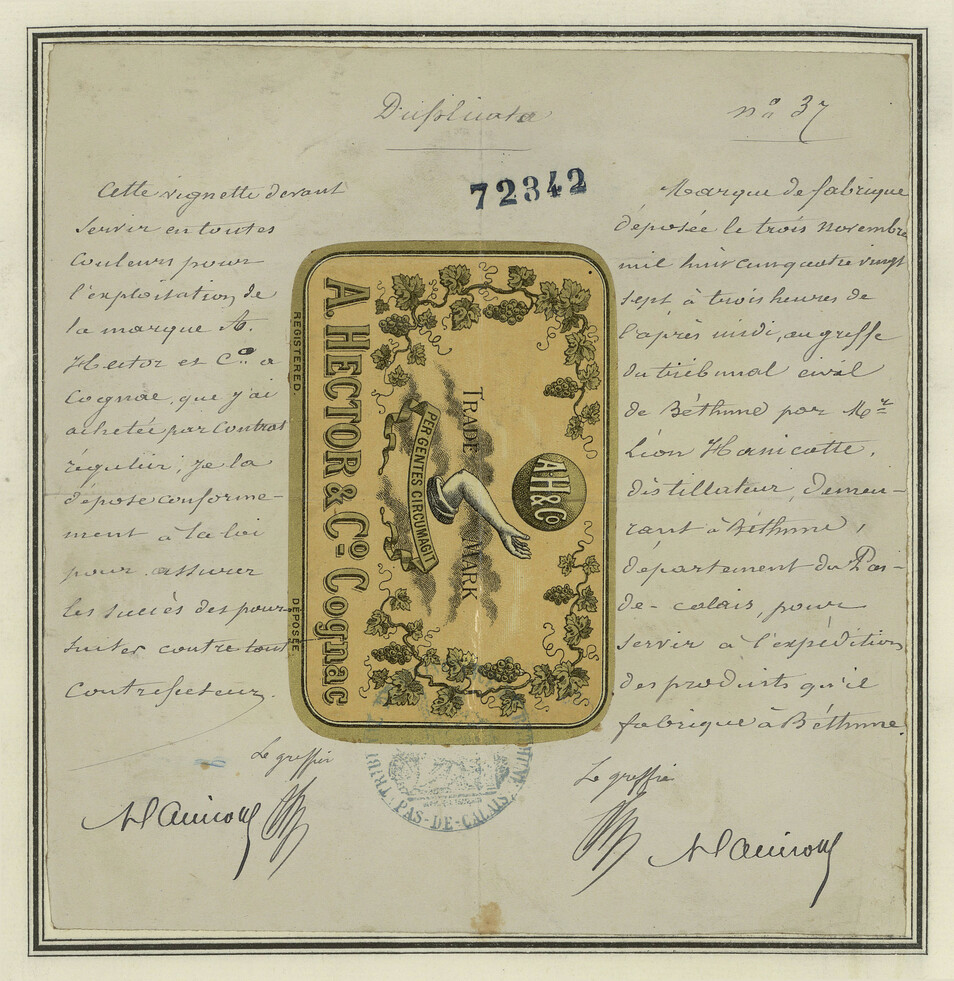 Duplicata
no 37
72342
Cette vignette devant
servir en toutes
couleurs pour
l'exploitation de
la marque A.
Hector et Co à
Cognac, que j'ai
achetée par contrat
régulier, je la
dépose conformé-
ment à la loi
pour assurer
les succès des pour-
suites contre tout
contrefacteur.
Le greffier
A. HECTOR & Co. Cognac
REGISTERED.
DÉPOSÉE
PER GENTES CIRCUMAGIT
TRADE MARK
A.H & Co
PAS-DE-CALAIS
Marque de fabrique
déposée le trois novembre
mil huit cent quatre vingt
sept à trois heures de
l'après midi, au greffe
du tribunal civil
de Béthune par Mr
Léon Hanicotte,
distillateur, demeu-
rant à Béthune,
département du Pas-
de-calais, pour
servir à l'expédition
des produits qu'il
fabrique à Béthune.
Le greffier